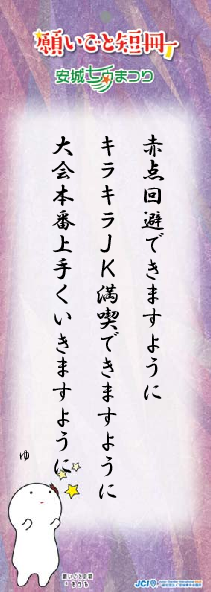 願いごと短冊
安城七夕まつり
赤点回避できますように
キラキラJK満喫できますように
大会本番上手くいきますように
ゆ
JCI